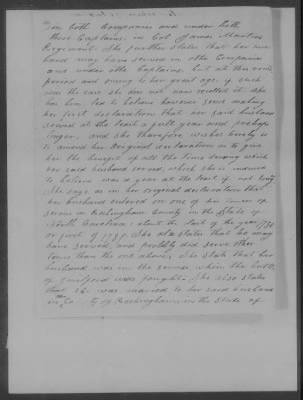 in both Companies and under both
these Captains, in Col James Martins
Regiment. She further states that her hus
band may have served in other Companies
and under other Captains, but at this remote
period and owing to her great age, if such
was the case she does not now recollect it. She
has been led to believe however since making
her first declaration that her said husband
served at the least a full year and perhaps
longer, and she therefore wishes hereby
to amend her Original declaration so to give
her the benefit of all the time during which
her said husband served, which she is induced
to believe was a year at the least if not longer
She says as in her original declaration that
her husband entered on one of his tours of
service in Rockingham County in the State of
North Carolina about the last of the year 1780
or first of 1781. She also states that he may
have served and probably did serve other
tours than the one above. She states that her
husband was in the service when the battle
of Guilford was fought. She also states
that she was married to her said husband
in the County of Rockingham in the State of